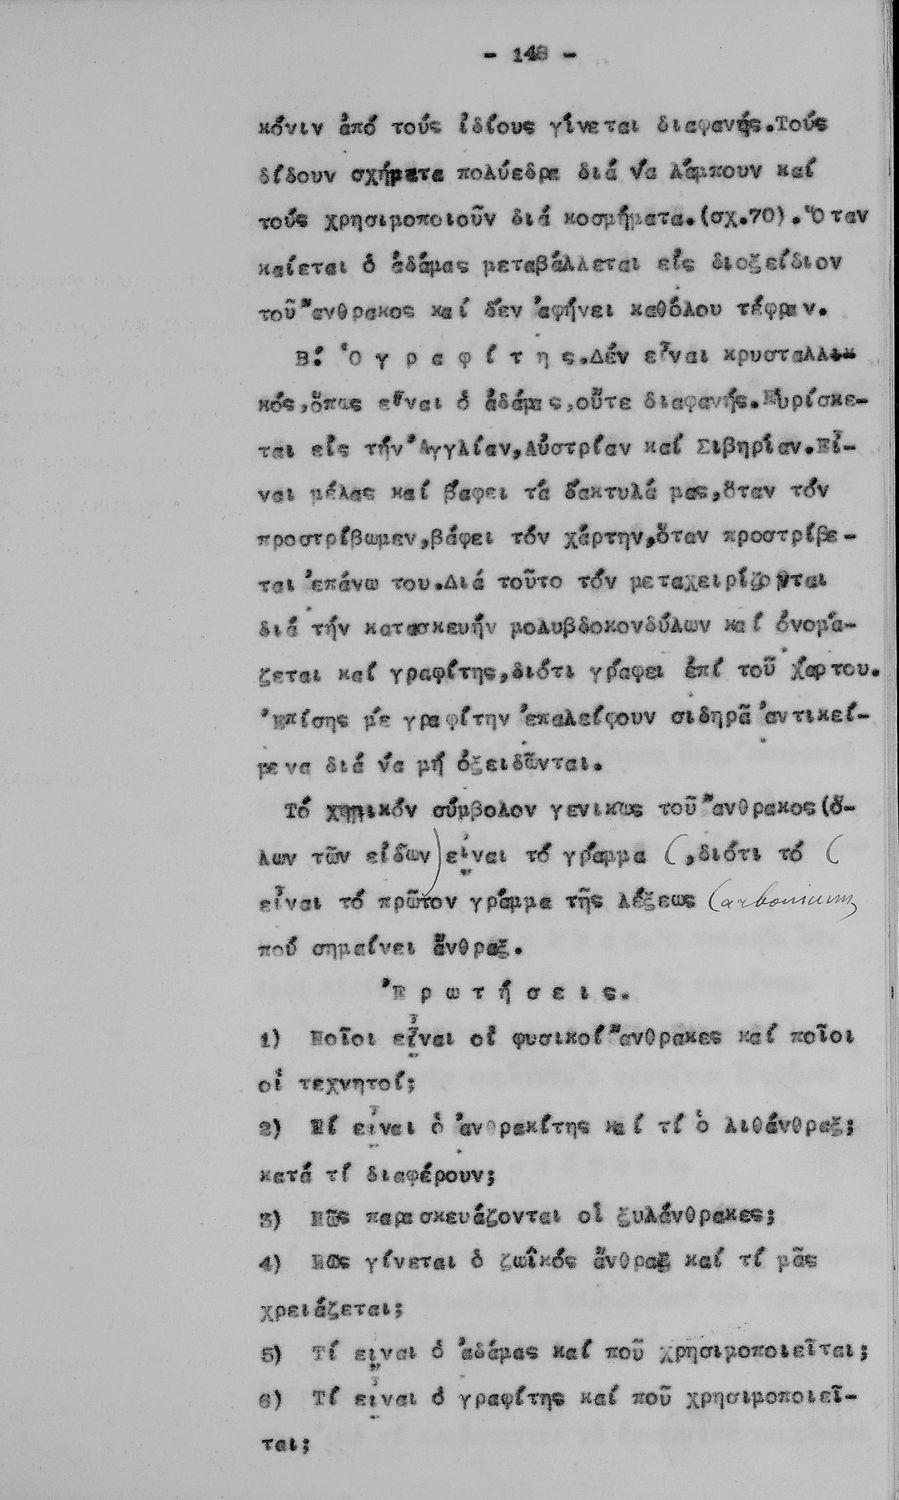 - 148 -
κόνιν ἀπό τούς ἰδίους γίνεται διαφανής.Τούς
δίδουν σχήματα πολύεδρα διά νά λάμπουν καί
τούς χρησιμοποιοῦν διά κοσμήματα.(σχ.70).Ὅταν
καίεται ὁ ἀδάμας μεταβάλλεται εἰς διοξείδιον
τοῦ ἄνθρακος καί δέν ἀφήνει καθόλου τέφραν.
Β! Ὁ γ ρ α φ ί τ η ς.Δέν εἶναι κρυσταλλι-
κός,ὅπως εἶναι ὁ ἀδάμας,οὔτε διαφανής.Εὑρίσκε-
ται εἰς τήν Ἀγγλίαν,Αὐστρίαν καί Σιβηρίαν.Εἶ-
ναι μέλας καί βάφει τά δάκτυλά μας,ὅταν τόν
προστρίβωμεν,βάφει τόν χάρτην,ὅταν προστρίβε-
ται ἐπάνω του.Διά τοῦτο τόν μεταχειρίζονται
διά τήν κατασκευήν μολυβδοκονδύλων καί ὀνομά-
ζεται καί γραφίτης,διότι γράφει ἐπί τοῦ χάρτου.
Ἐπίσης μέ γραφίτην ἐπαλείφουν σιδηρᾶ ἀντικεί-
μενα διά νά μή ὀξειδῶνται.
Τό χημικόν σύμβολον γενικως τοῦ ἄνθρακος(ὅ-
λων τῶν εἰδῶν) εἶναι τό γράμμα C,διότι τό C
εἶναι τό πρῶτον γράμμα τῆς λέξεως Carbonicum,
πού σημαίνει ἄνθραξ.
Ἐ ρ ω τ ή σ ε ι ς.
1) Ποῖοι εἶναι οἱ φυσικοί ἄνθρακες καί ποῖοι
οἱ τεχνητοί;
2) Τί εἶναι ὁ ἀνθρακίτης καί τί ὁ λιθάνθραξ;
κατά τί διαφέρουν;
3) Πῶς παρασκευάζονται οἱ ξυλάνθρακες;
4) Πῶς γίνεται ὁ ζωϊκός ἄνθραξ καί τί μᾶς
χρειάζεται;
5) Τί εἶναι ὁ ἀδάμας καί ποῦ χρησιμοποιεῖται;
6) Τί εἶναι ὁ γραφίτης καί ποῦ χρησιμοποιεῖ-
ται;